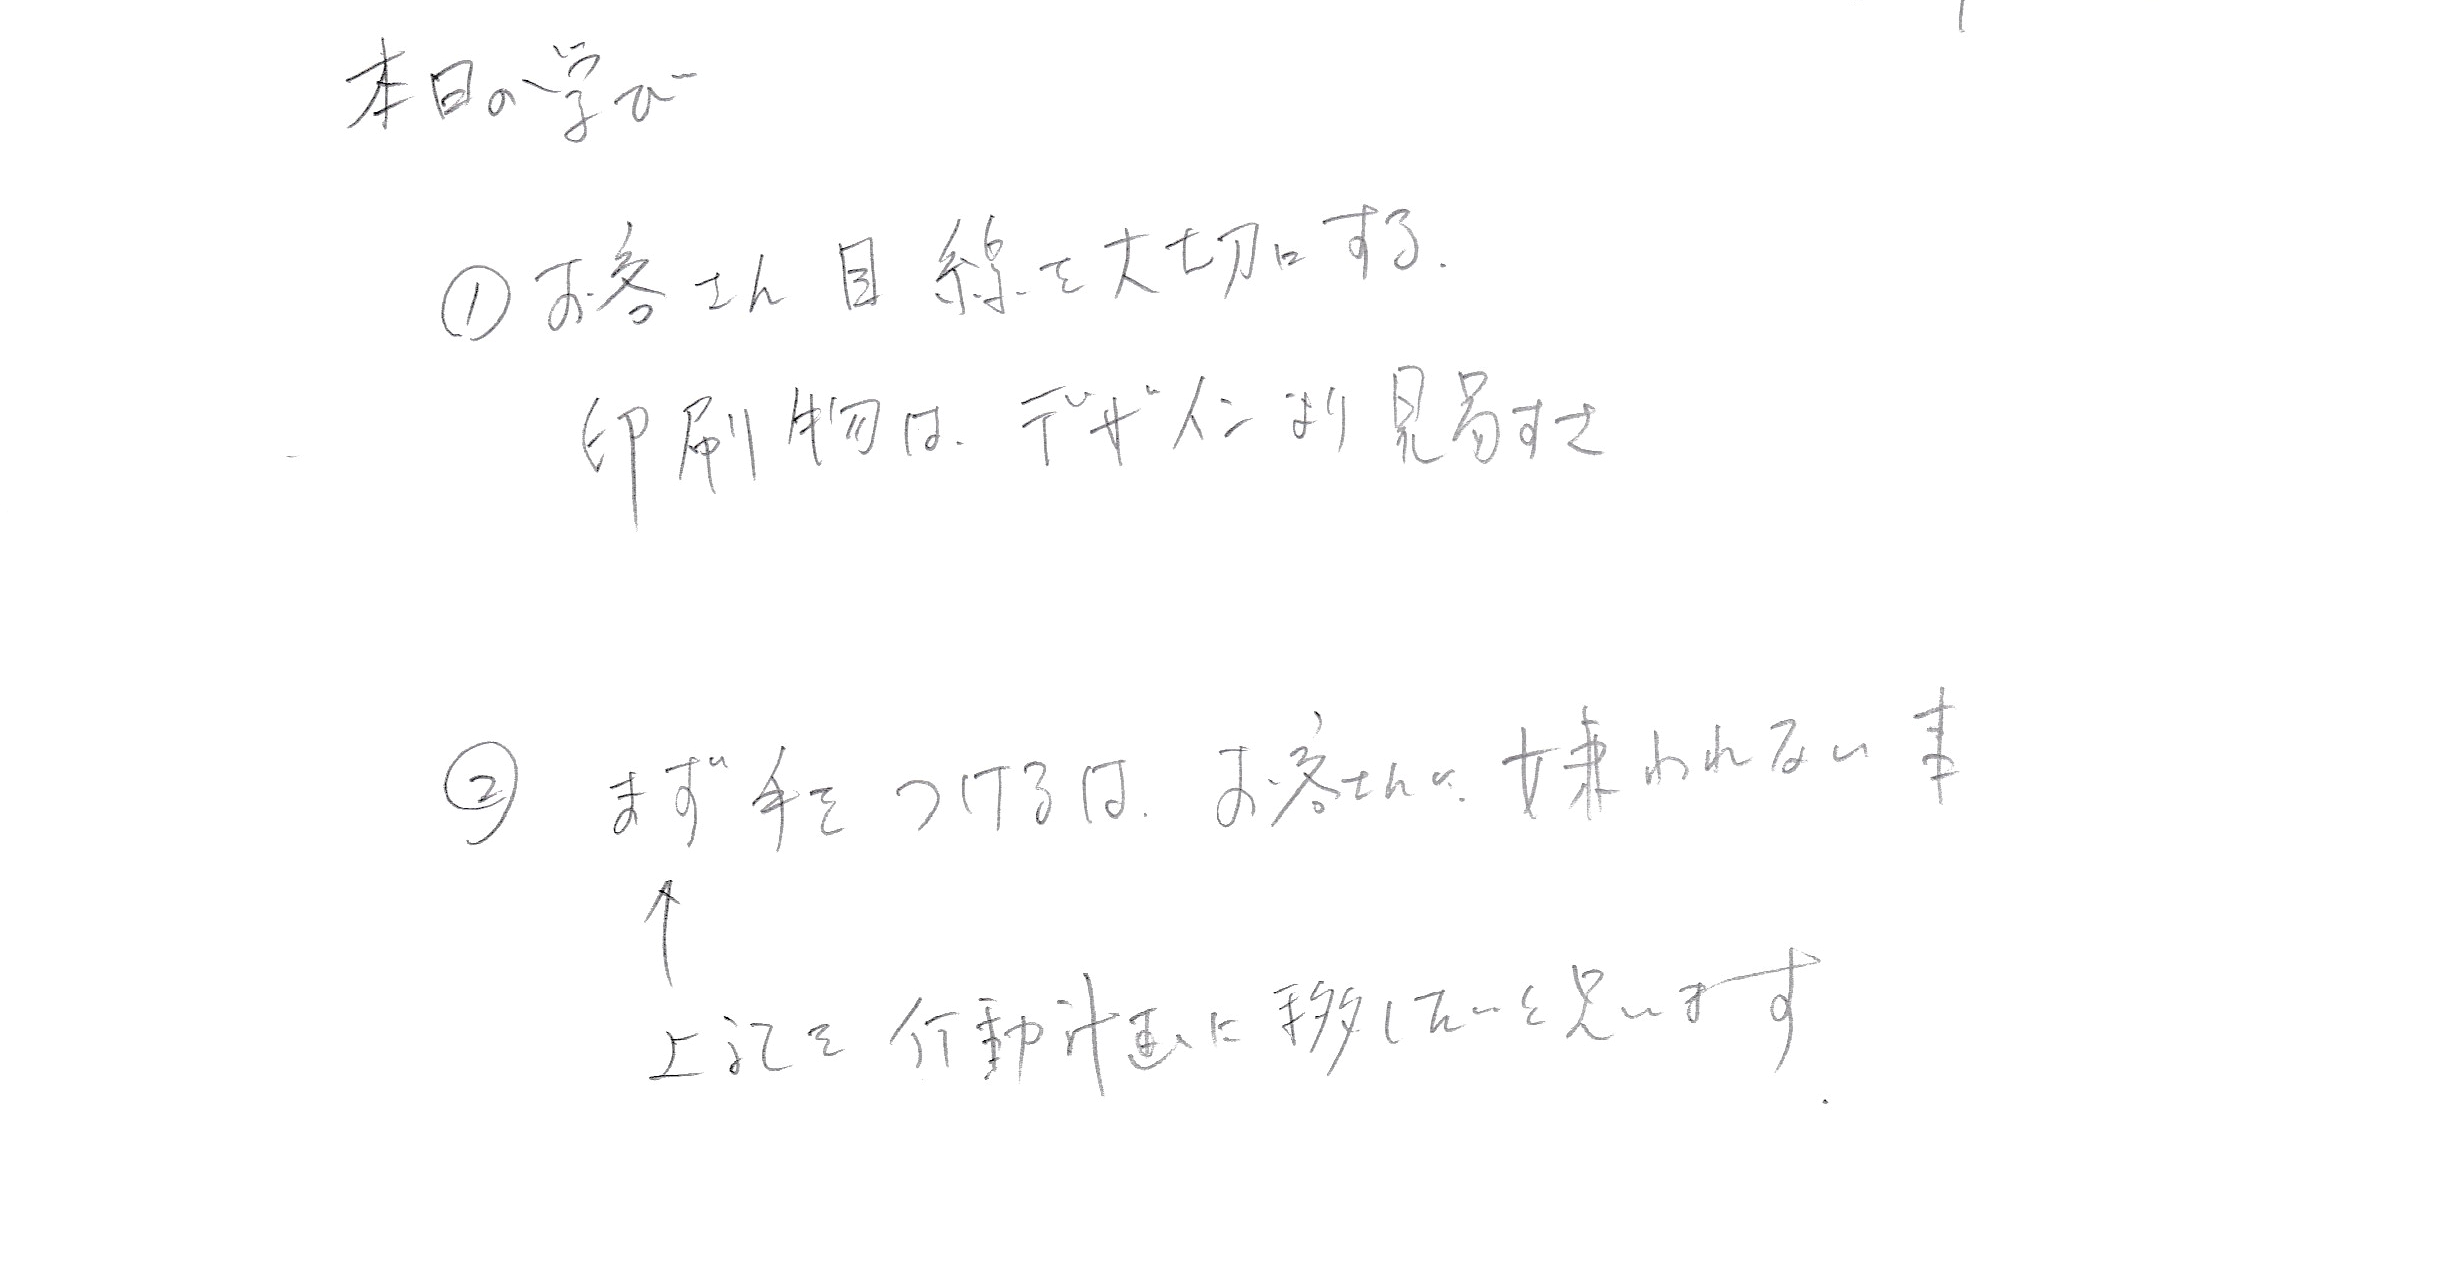 本日の学び
① お客さん目線を大切にする.
印刷物は、デザインより見易すさ
② まず手をつけるは、お客さんに、嫌われない事
↑
上記を行動計画に移したいと思います.